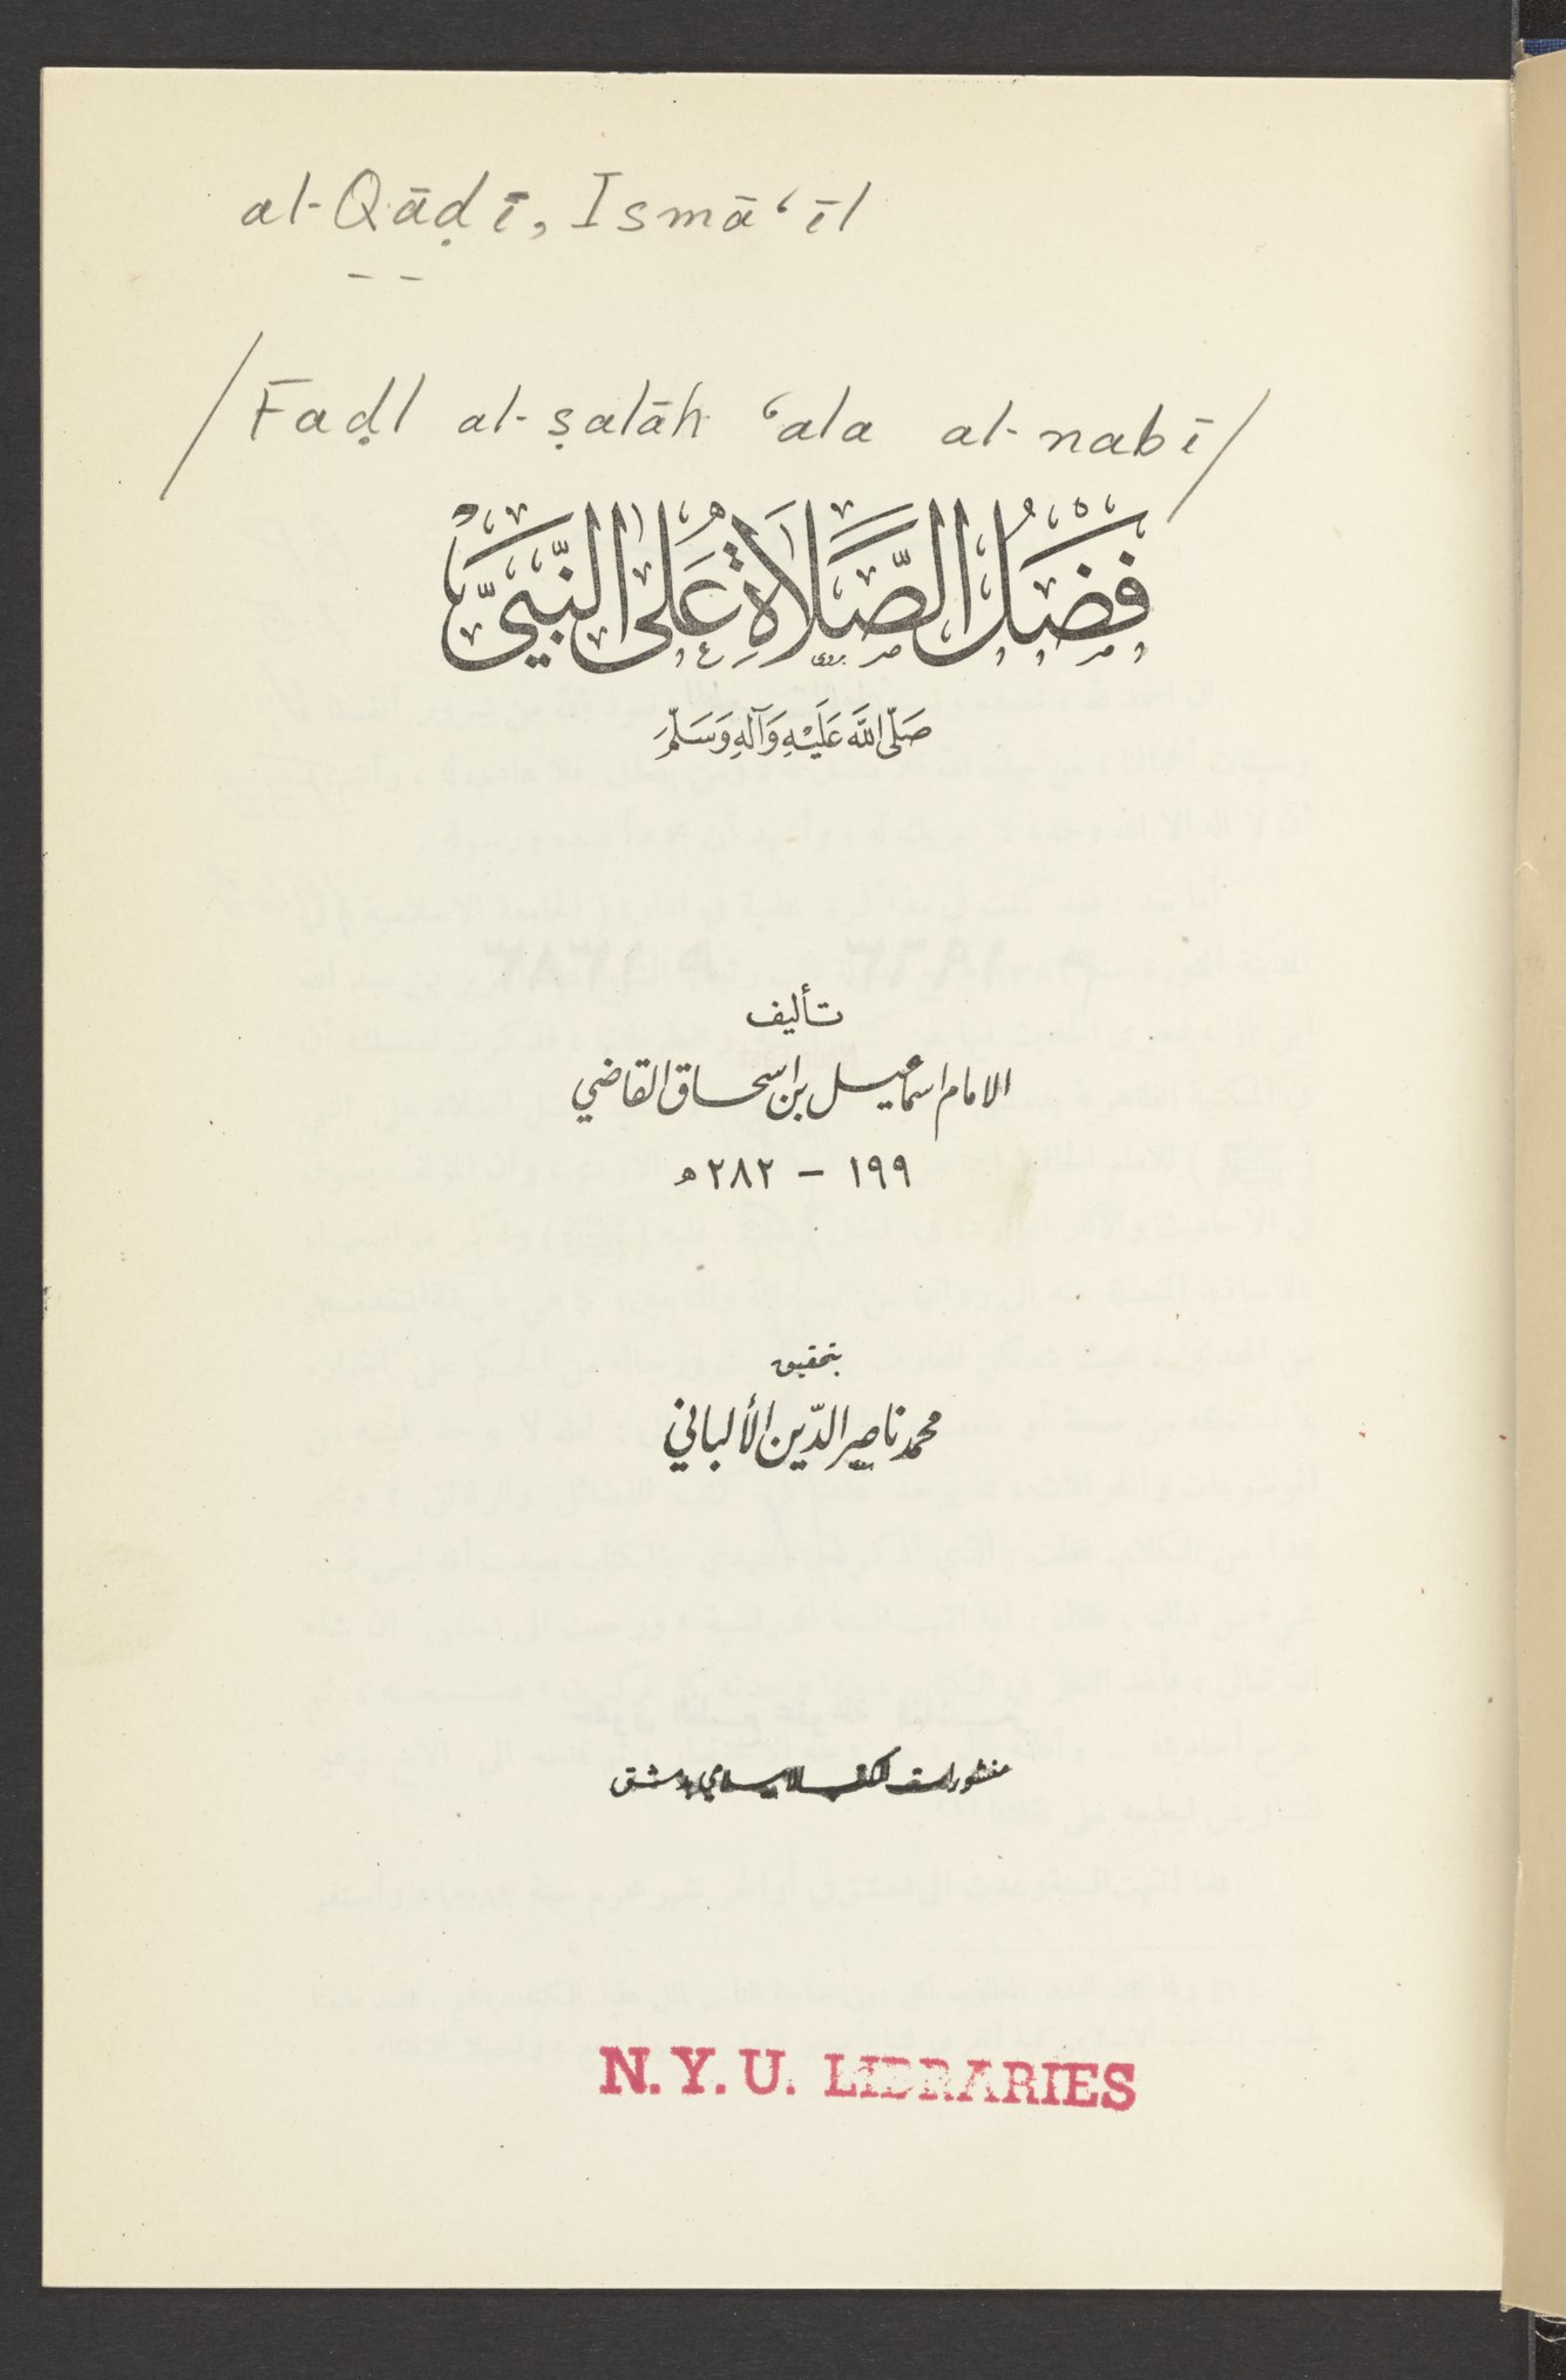 al-Qāḍī, Ismā‘īl
/Faḍl al-ṣalāh ‘ala al-nabī/
فَضْلُ الصَّلَاةِ عَلَى النَّبِيِّ
صَلَّى اللَّهُ عَلَيْهِ وَآلِهِ وَسَلَّمَ
تأليف
الامام اسماعيل بن اسحاق القاضي
١٩٩ - ٢٨٢ ه
بتحقيق
محمد ناصر الدّين الألباني
منشورات المكتب الاسلامي بدمشق
N.Y.U. LIBRARIES